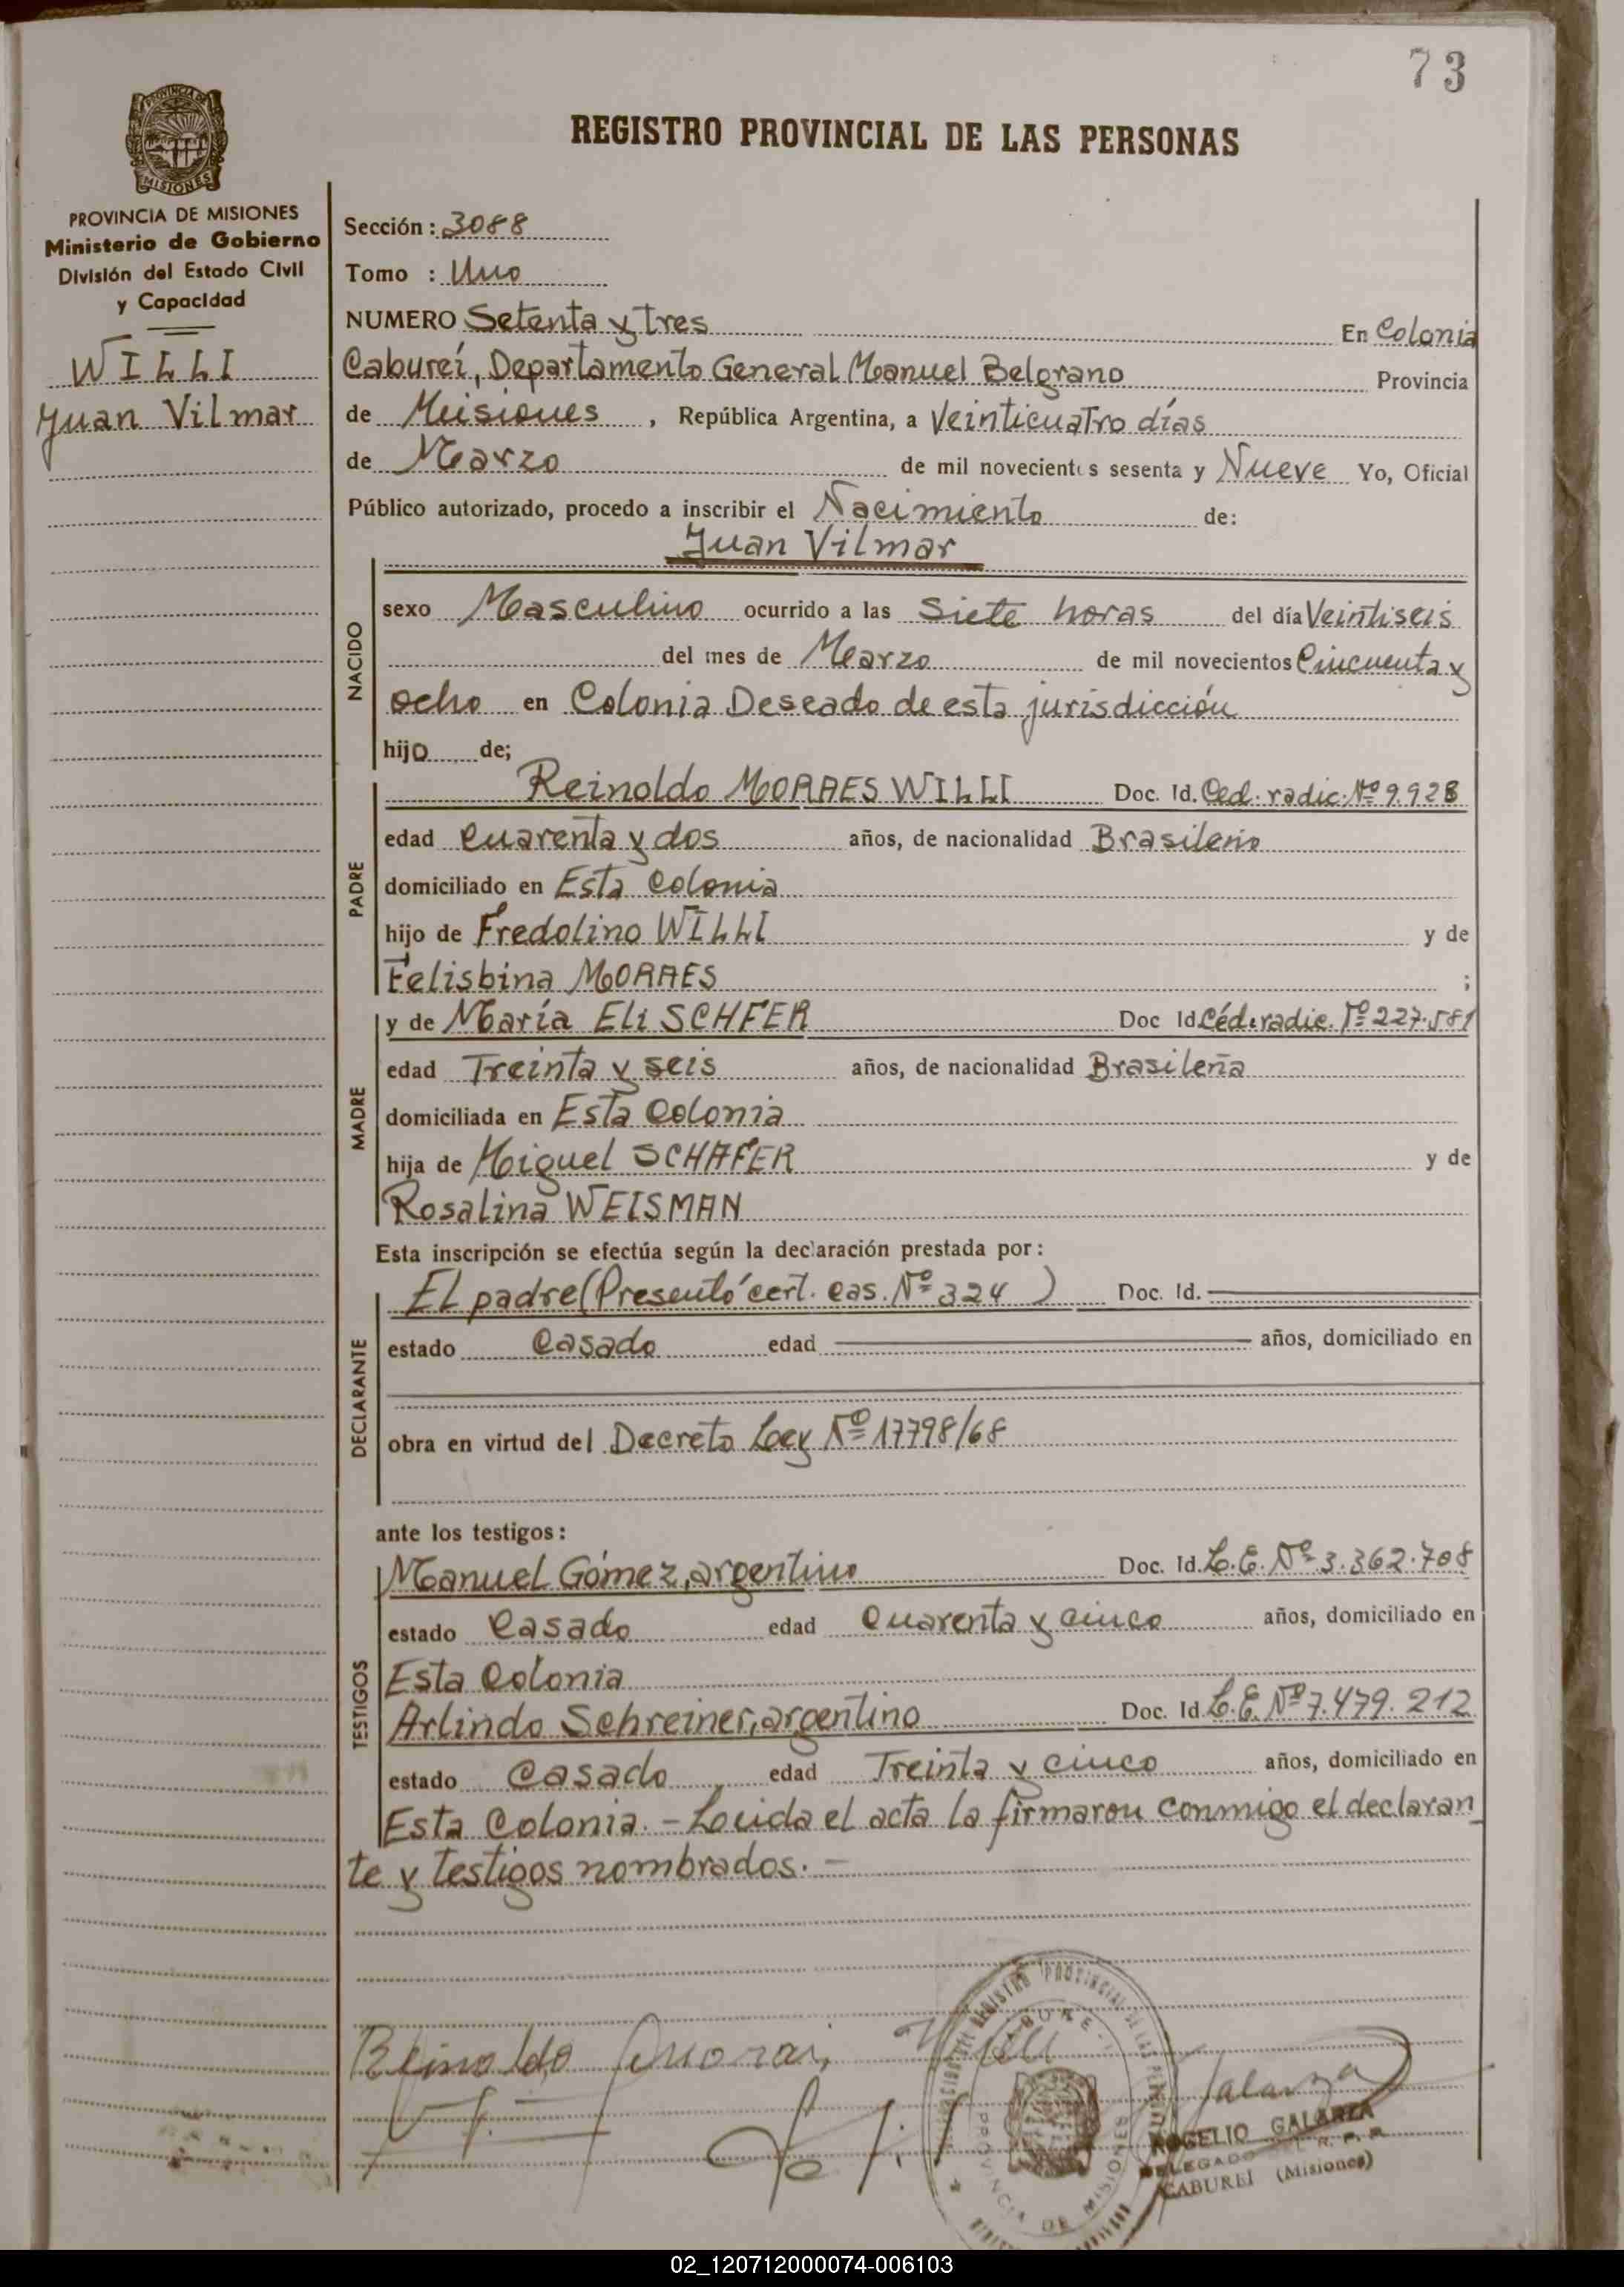 73
REGISTRO PROVINCIAL DE LAS PERSONAS
PROVINCIA DE MISIONES
Ministerio de Gobierno
División del Estado Civil
y Capacidad
WILLI
Juan Vilmar
Sección: 3088
Tomo : Uno
NUMERO Setenta y tres En Colonia
Cabureí, Departamento General Manuel Belgrano Provincia
de Misiones , República Argentina, a Veinticuatro días
de Marzo de mil novecientos sesenta y Nueve Yo, Oficial
Público autorizado, procedo a inscribir el Nacimiento de:
Juan Vilmar
NACIDO
sexo Masculino ocurrido a las Siete horas del día Veintiseis
del mes de Marzo de mil novecientos Cincuenta y
ocho en Colonia Deseado de esta jurisdicción
hijo de;
PADRE
Reinoldo MORAES WILLI Doc. Id. Ced. radic. Nº 9.928
edad Cuarenta y dos años, de nacionalidad Brasileño
domiciliado en Esta Colonia
hijo de Fredolino WILLI y de
Felisbina MORAES ;
MADRE
y de María Eli SCHFER Doc Id. Céd. radic. Nº 227.581
edad Treinta y seis años, de nacionalidad Brasileña
domiciliada en Esta Colonia
hija de Miguel SCHAFER y de
Rosalina WEISMAN
Esta inscripción se efectúa según la declaración prestada por:
DECLARANTE
El padre (Presentó cert. cas. Nº 324 ) Doc. Id.
estado Casado edad años, domiciliado en
obra en virtud del Decreto Ley Nº 17798/68
ante los testigos:
TESTIGOS
Manuel Gómez, argentino Doc. Id. L.E. Nº 3.362.708
estado Casado edad Cuarenta y cinco años, domiciliado en
Esta Colonia
Arlindo Schreiner, argentino Doc. Id. L.E. Nº 7.479.212
estado Casado edad Treinta y cinco años, domiciliado en
Esta Colonia. - Leída el acta la firmaron conmigo el declaran
te y testigos nombrados. -
Reinoldo Morai Willi
Galarza
ROGELIO GALARZA
DELEGADO R. P. P.
CABUREI (Misiones)
PROVINCIA DE MISIONES
02_120712000074-006103